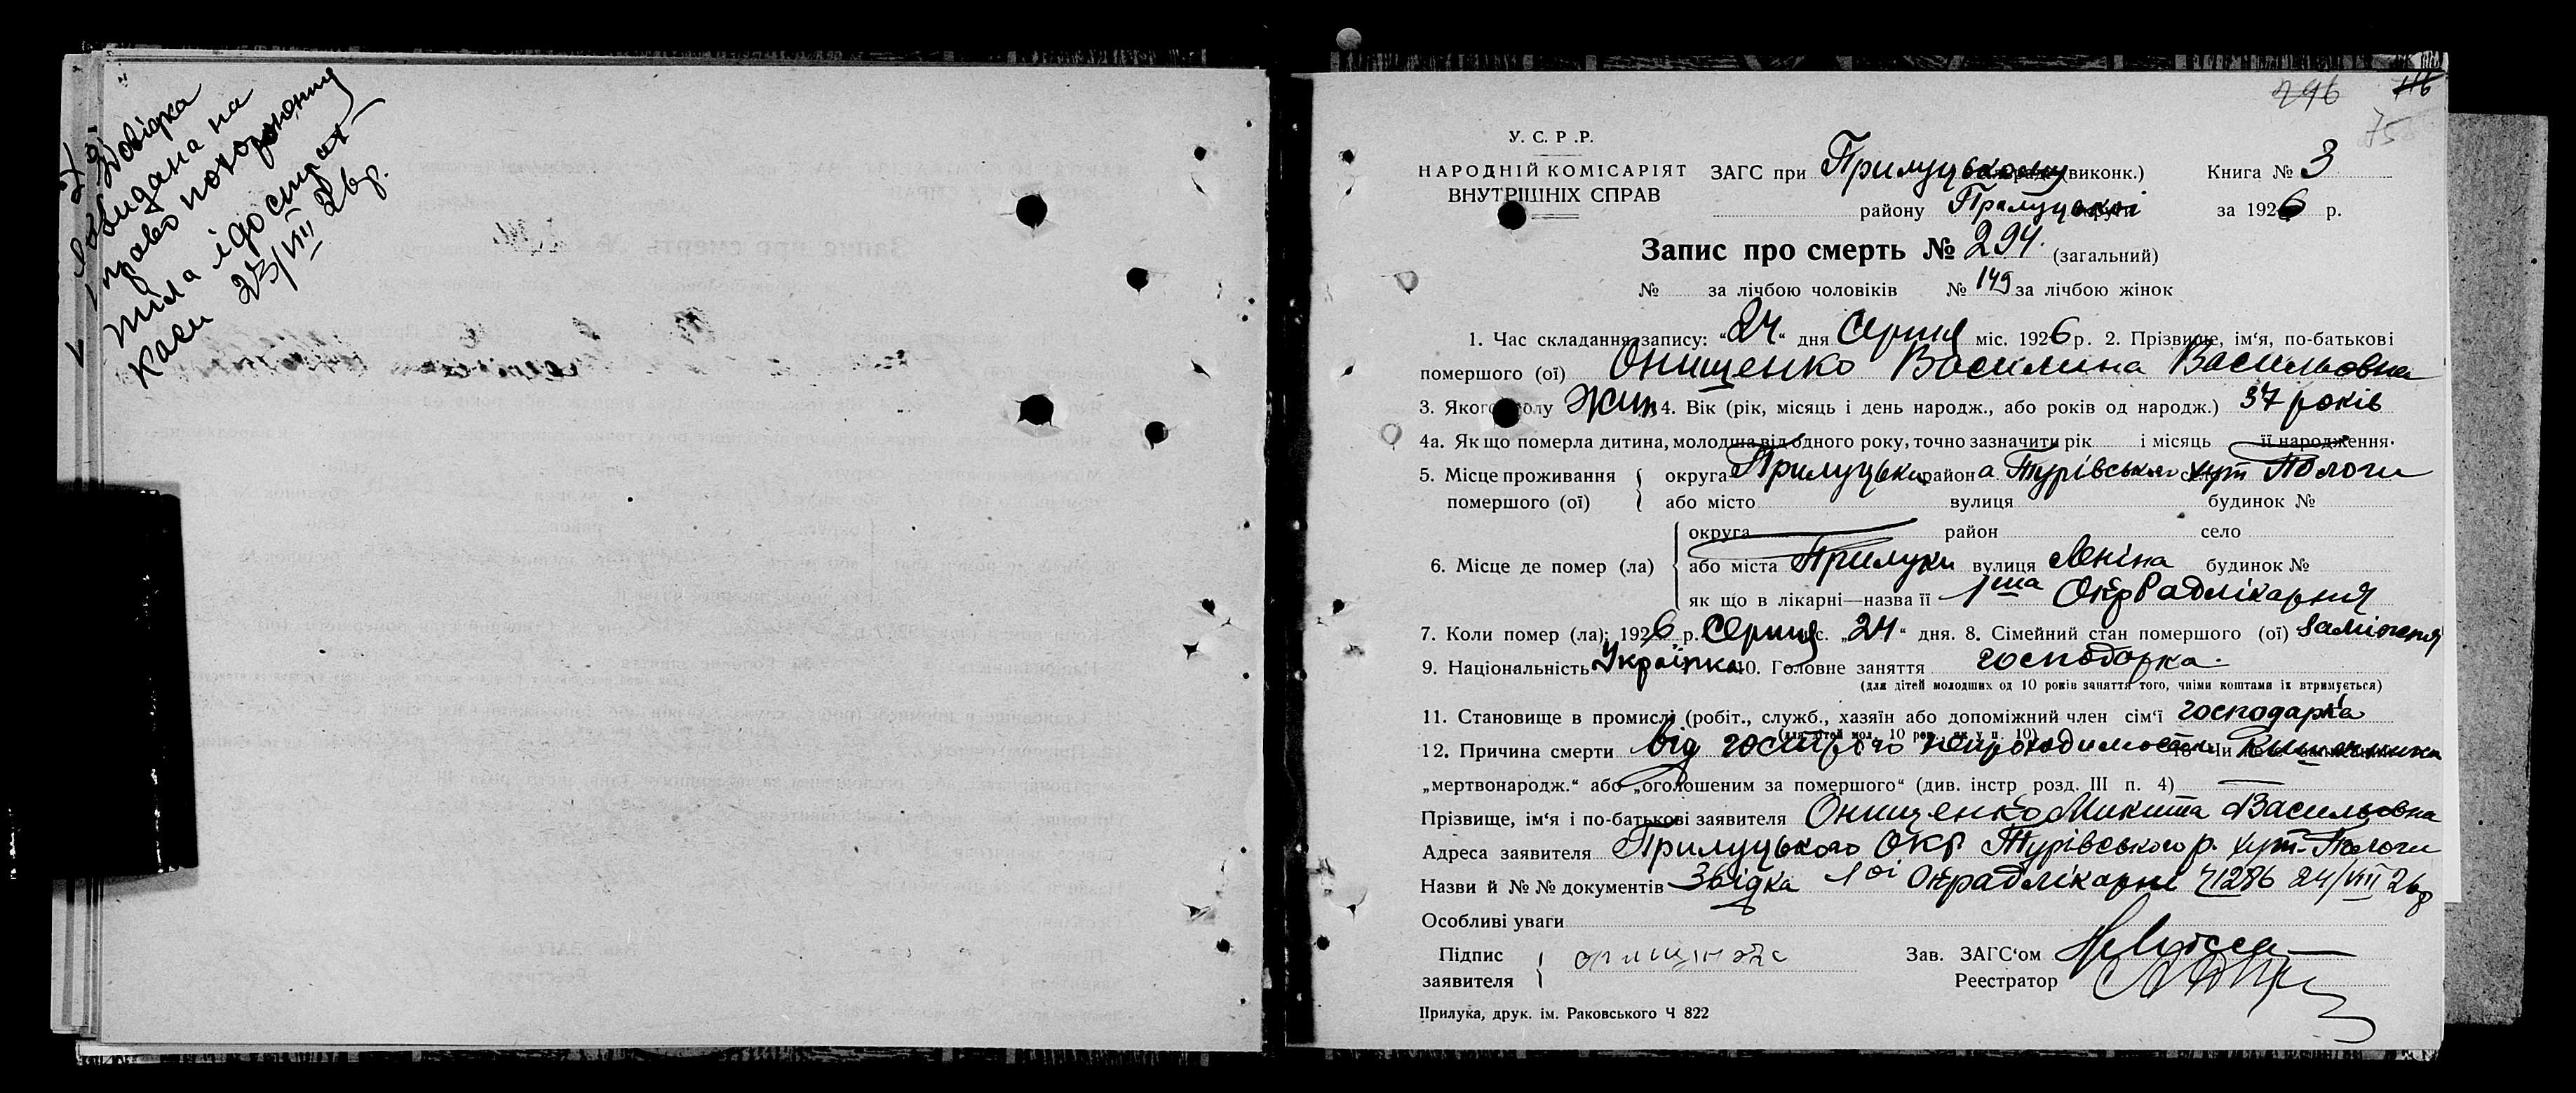 Довідка
видана на
право похорониня
тіла і до страх
каси 23/VIII 26р.
296
75
У. С. Р. Р.
НАРОДНІЙ КОМІСАРІЯТ
ВНУТРІШНІХ СПРАВ
ЗАГС при Прилуцькому (виконк.)
району Прилуцької
Книга № 3
за 1926 р.
Запис про смерть № 294. (загальний)
№ за лічбою чоловіків № 149 за лічбою жінок
1. Час складання запису: "24" дня Серпня міс. 1926 р. 2. Прізвище, ім'я, по-батькові
помершого (ої) Онищенко Василина Васильовна
3. Якого полу Жін 4. Вік (рік, місяць і день народж., або років од народж.) 37 років
4а. Як що померла дитина, молодша від одного року, точно зазначити рік і місяць її народження.
5. Місце проживання округа Прилуцька район а Турівського хут Пологи
помершого (ої) або місто вулиця будинок №
округа район село
6. Місце де помер (ла) або міста Прилуки вулиця Леніна будинок №
як що в лікарні—назва її 1ша ОкрРадлікарня
7. Коли помер (ла): 1926 р. Серпня с. „24" дня. 8. Сімейний стан помершого (ої) заміжня
9. Національність Українка 10. Головне заняття господарка.
(для дітей молодших од 10 років заняття того, чиїми коштами їх втримується)
11. Становище в промислі (робіт., служб., хазяїн або допоміжний член сім'ї господарка
(для дітей мол. 10 рок., як у п. 10)
12. Причина смерти від гострого непроходимости Кишечника
„мертвонародж." або „оголошеним за помершого" (див. інстр розд. III п. 4)
Прізвище, ім'я і по-батькові заявителя Онищенко Микита Васильовна
Адреса заявителя Прилуцького Окр Турівського р. хут. Пологи
Назви й №№ документів Звідка 1ої Окрадлікарні Ч1286 24/VIII 26р
Особливі уваги
Підпис
заявителя
Зав. ЗАГС'ом
Реєстратор
Прилука, друк. ім. Раковського Ч 822